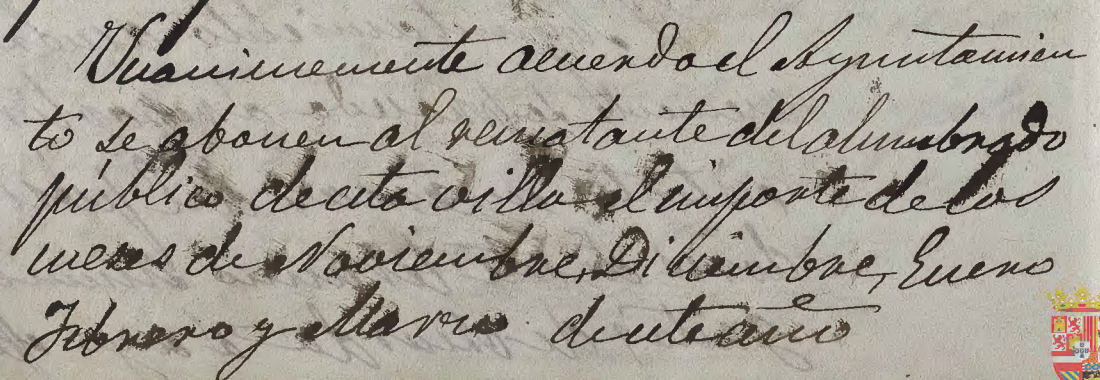 Unanimemente acuerda el Ayuntamien
to se abonen al rematante del alumbrado
público de esta villa el importe de los
meses de Noviembre, Diciembre, Enero
Febrero y Marzo de este año